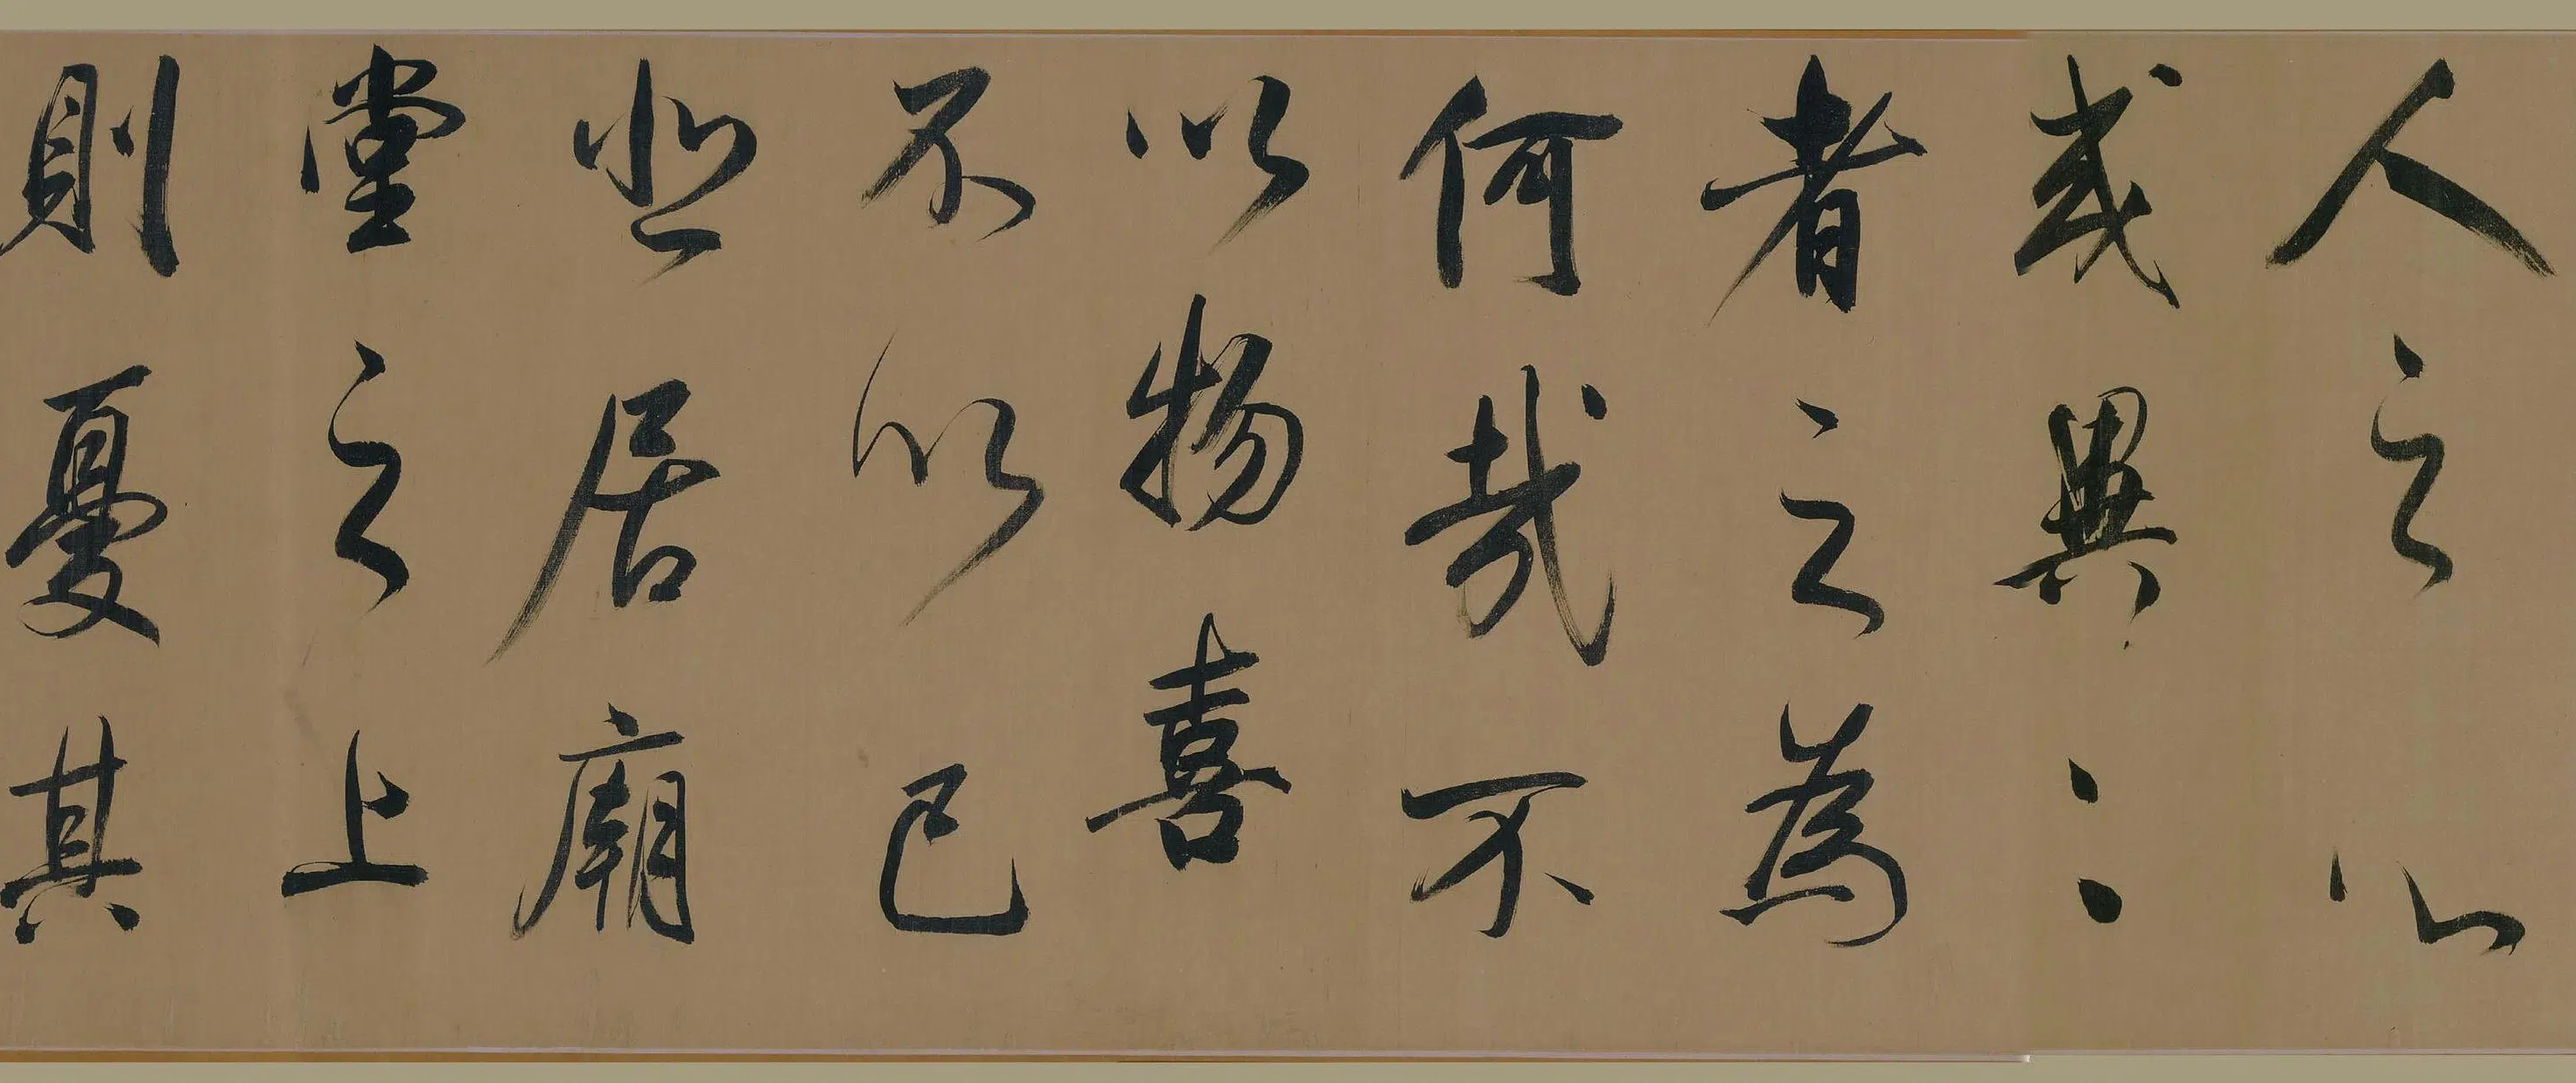 人之心
或異二
者之為
何哉不
以物喜
不以己
悲居廟
堂之上
則憂其